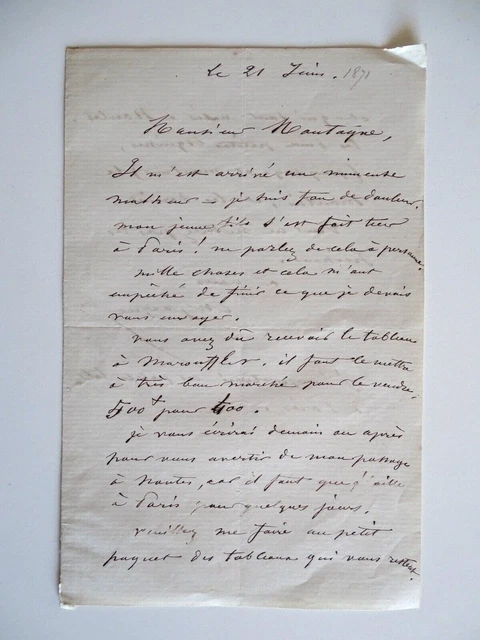 Le 21 Juin. 1871
Monsieur Montagne,
Il m'est arrivé un immense
malheur – je suis fou de douleur,
mon jeune fils s'est fait tuer
à Paris! ne parlez de cela à personne.
mille choses et cela m'ont
empêché de finir ce que je devais
vous envoyer.
vous avez dû recevoir le tableau
à Maroufler. il faut le mettre
à très bon marché pour le vendre,
500 f pour 400.
je vous écrirai demain ou après
pour vous avertir de mon passage
à Nantes, car il faut que j'aille
à Paris pour quelques jours.
veuillez me faire un petit
paquet des tableaux qui vous restent.